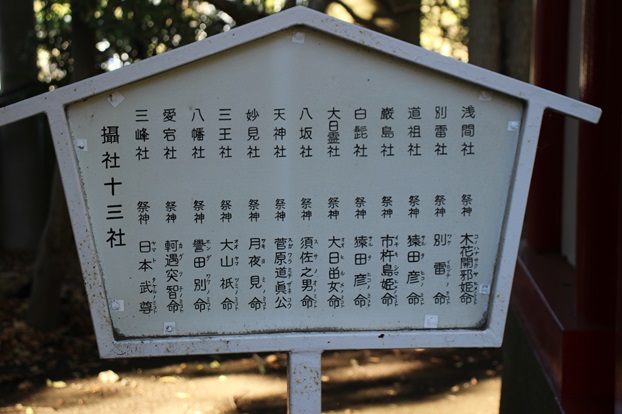 浅間社 祭神 木花開邪姫命
別雷社 祭神 別雷命
道祖社 祭神 猿田彦命
厳島社 祭神 市杵島姫命
白髭社 祭神 猿田彦命
大日霊社 祭神 大日孁女命
八坂社 祭神 須佐之男命
天神社 祭神 菅原道眞公
妙見社 祭神 月夜見命
三王社 祭神 大山祇命
八幡社 祭神 譽田別命
愛宕社 祭神 軻遇突智命
三峰社 祭神 日本武尊
攝社十三社